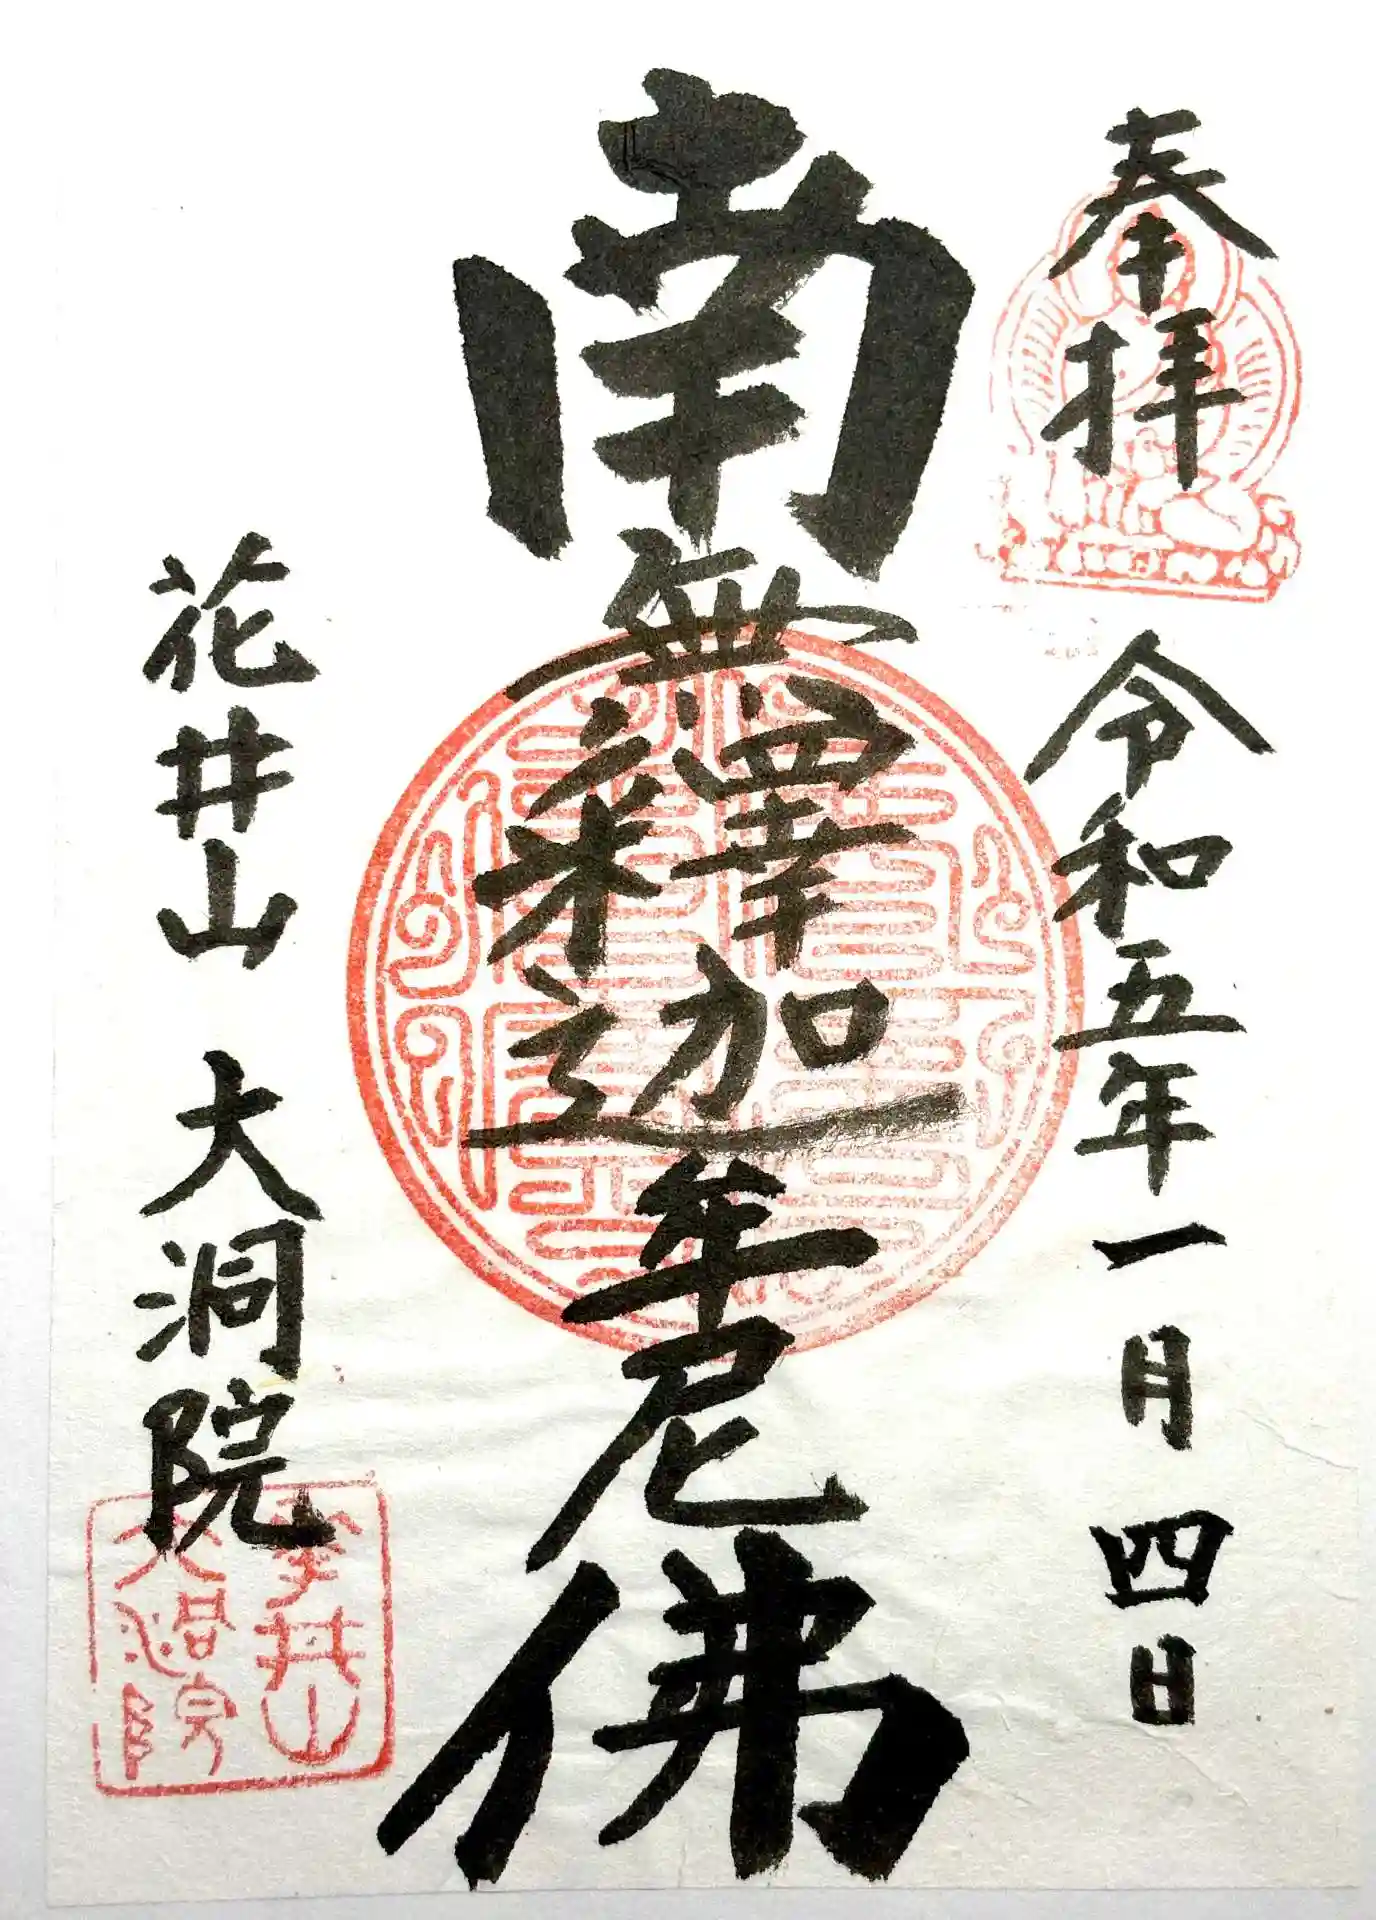 奉拝
令和五年一月四日
南無釋迦年尼佛
花井山 大洞院